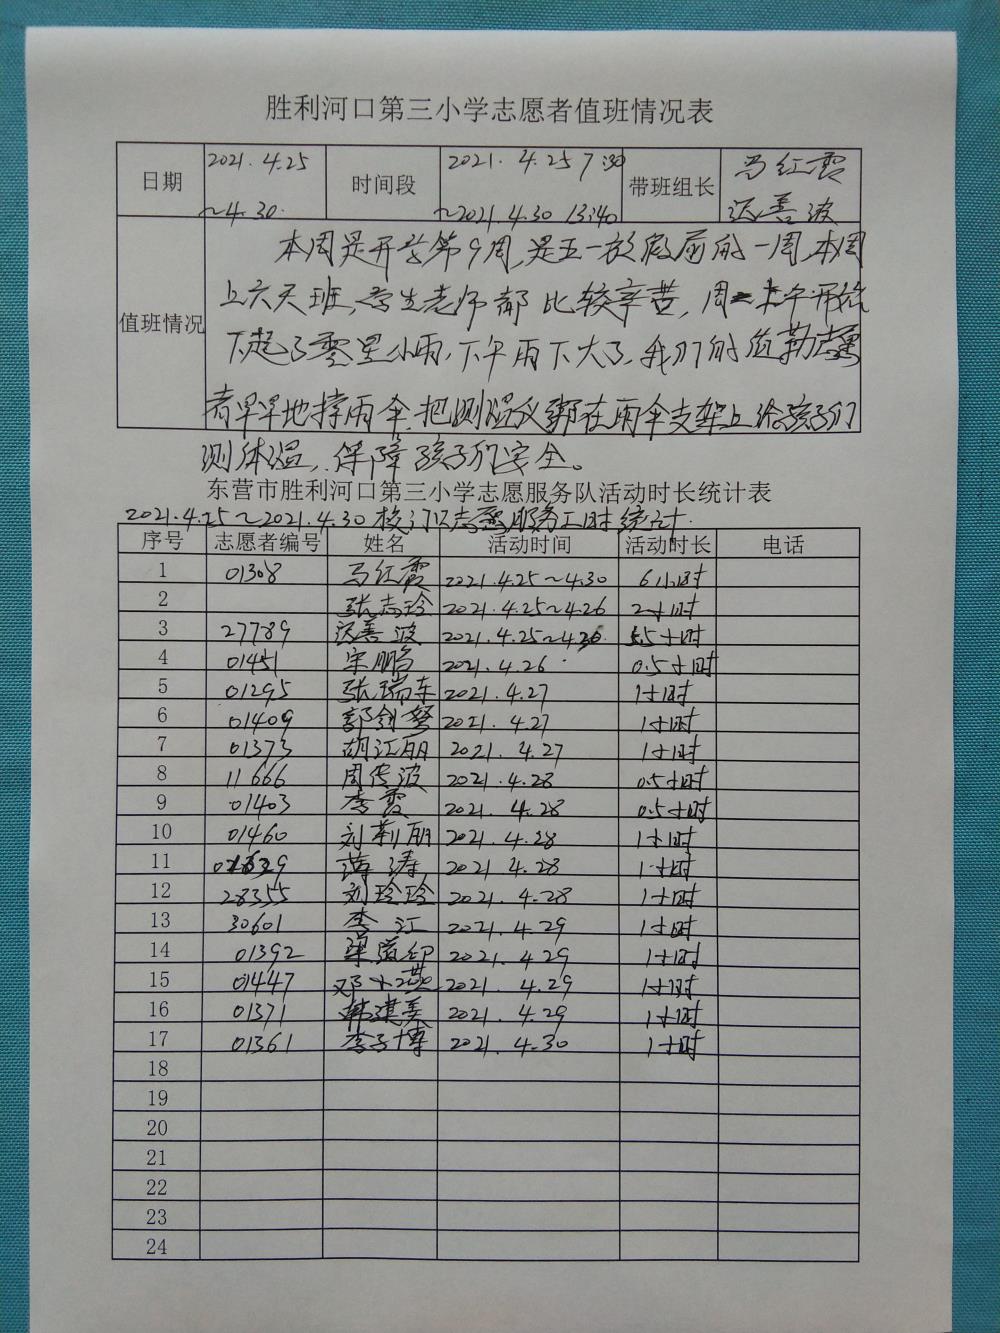 胜利河口第三小学志愿者值班情况表
日期 2021.4.25 ~4.30. 时间段 2021.4.25 7:30 ~2021.4.30 13:40 带班组长 马红霞 善波
值班情况
本周是开学第9周,是五一放假前的一周,本周
上六天班,学生老师都比较辛苦,周一上午开始
下起了零星小雨,下午雨下大了,我们的值勤志愿
者早早地撑雨伞,把测温仪绑在雨伞支架上给孩子们
测体温,保障孩子们安全。
东营市胜利河口第三小学志愿服务队活动时长统计表
2021.4.25~2021.4.30校门口志愿服务工时统计.
序号 志愿者编号 姓名 活动时间 活动时长 电话
1 01308 马红霞 2021.4.25~4.30 6小时
2 张志玲 2021.4.25~4.26 2小时
3 27789 善波 2021.4.25~4.30 5.5小时
4 01451 宋鹏 2021.4.26 0.5小时
5 01295 张瑞东 2021.4.27 1小时
6 01409 郭剑 2021.4.27 1小时
7 01373 胡江丽 2021.4.27 1小时
8 11666 周传波 2021.4.28 0.5小时
9 01403 李霞 2021.4.28 0.5小时
10 01460 刘莉丽 2021.4.28 1小时
11 薄涛 2021.4.28 1小时
12 28355 刘玲玲 2021.4.28 1小时
13 30601 李江 2021.4.29 1小时
14 01392 2021.4.29 1小时
15 01447 邓小燕 2021.4.29 1小时
16 01371 韩建美 2021.4.29 1小时
17 01361 李子博 2021.4.30 1小时
18
19
20
21
22
23
24